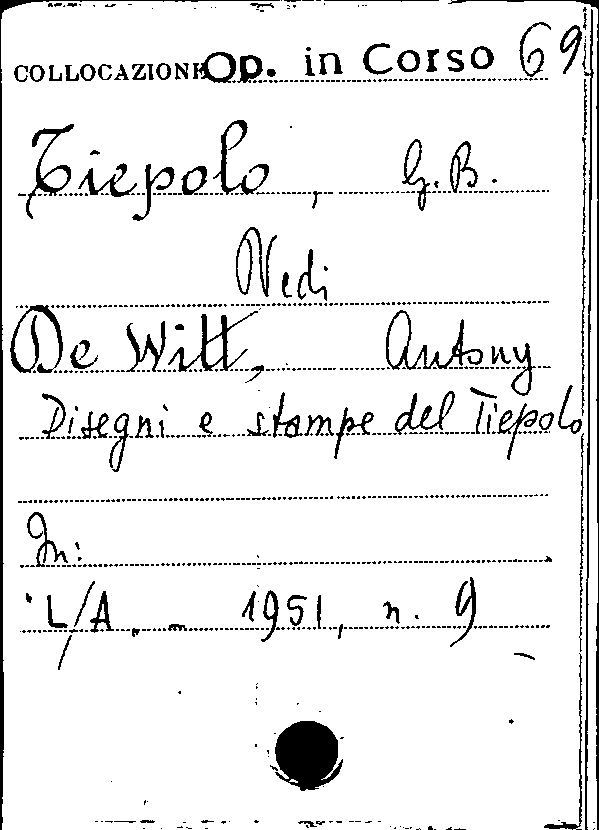 COLLOCAZIONE Op. in Corso 69
Tiepolo, G.B.
Vedi
De Witt, Antony
Disegni e stampe del Tiepolo
In:
L/A. - 1951, n. 9